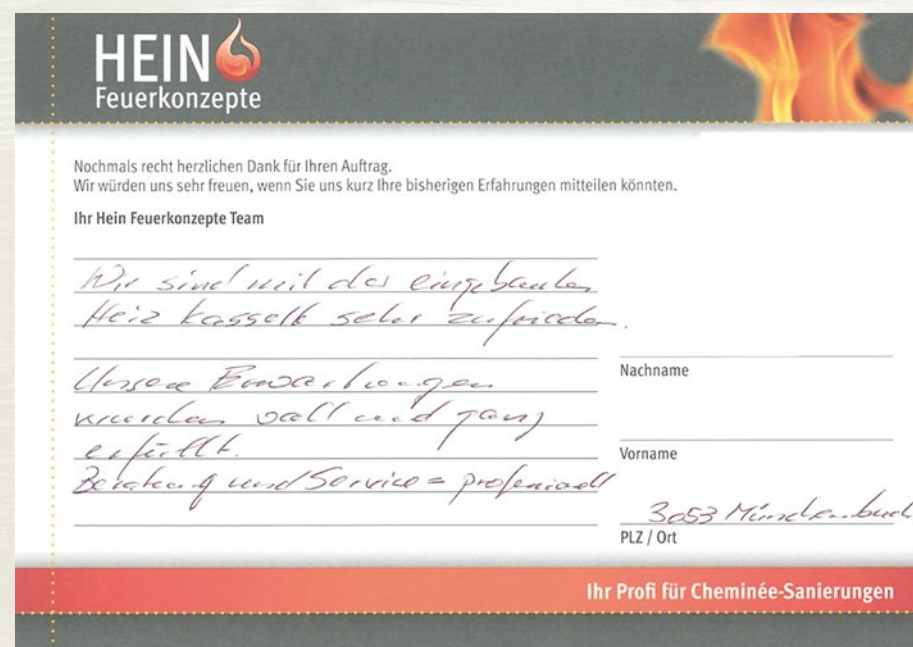 HEIN
Feuerkonzepte
Nochmals recht herzlichen Dank für Ihren Auftrag.
Wir würden uns sehr freuen, wenn Sie uns kurz Ihre bisherigen Erfahrungen mitteilen könnten.
Ihr Hein Feuerkonzepte Team
Wir sind mit der eingebauten
Heiz kassette sehr zufrieden.
Unsere Erwartungen
wurden voll und ganz
erfüllt.
Beratung und Service = professionell
Nachname
Vorname
3053 Münchenbuch
PLZ / Ort
Ihr Profi für Cheminée-Sanierungen